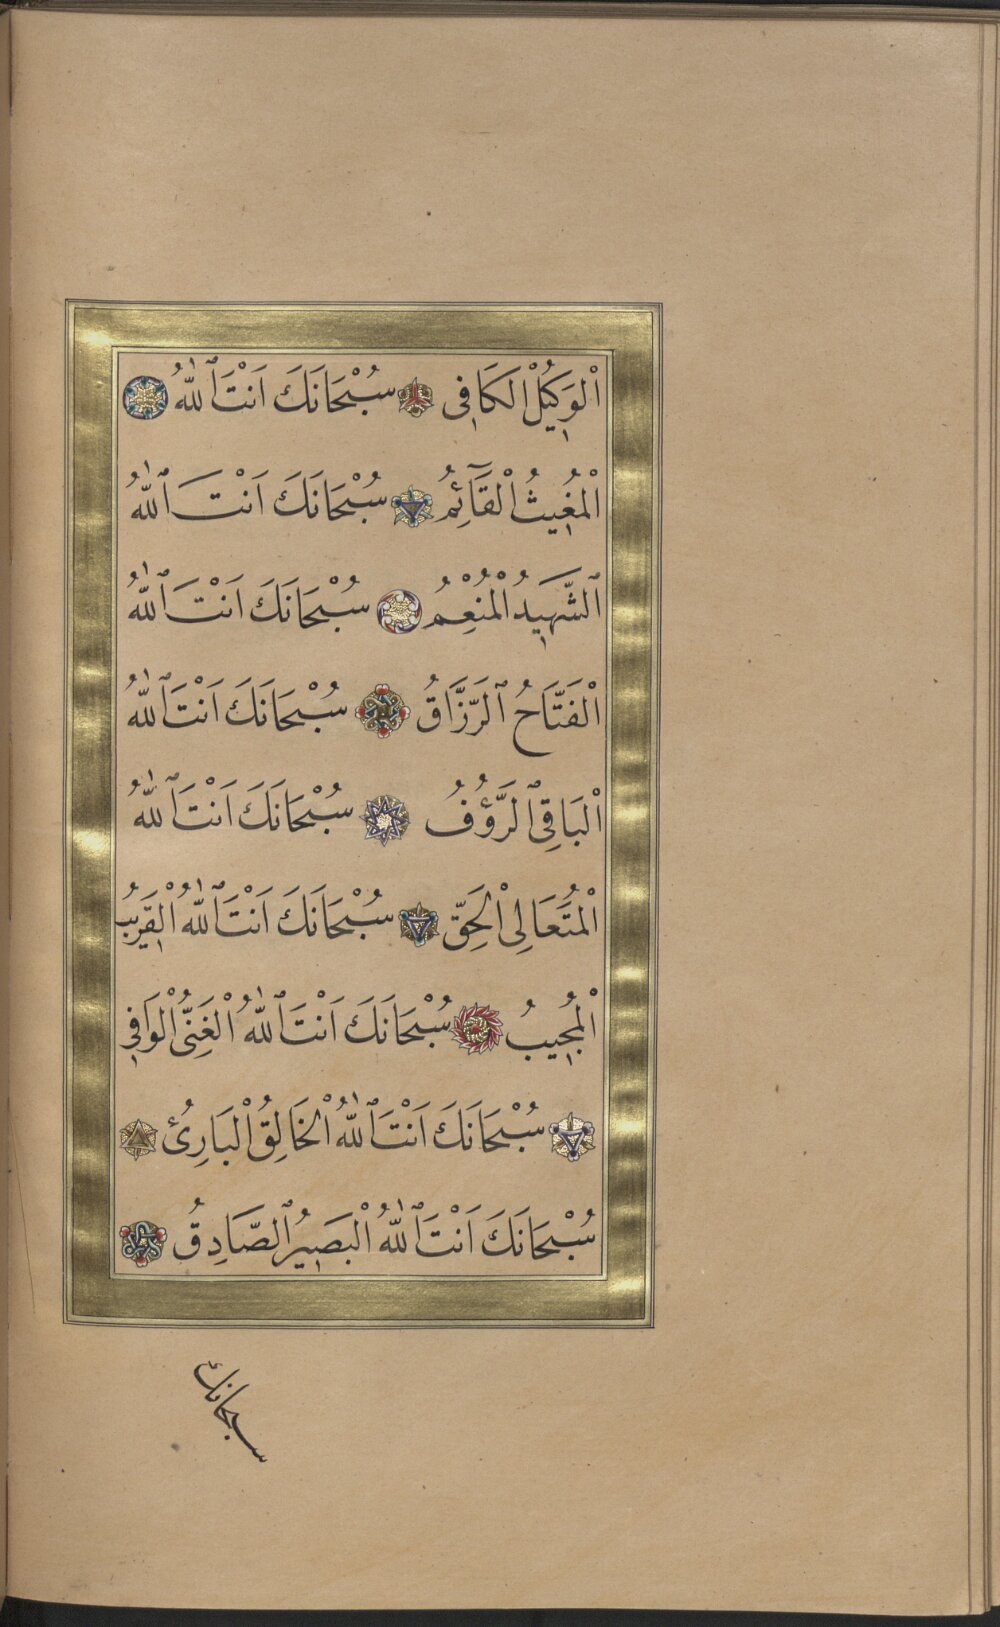 اَلْوَكِيلُ الْكَافِى سُبْحَانَكَ اَنْتَ اللّٰهُ
الْمُغِيثُ الْقَآئِمُ سُبْحَانَكَ اَنْتَ اللّٰهُ
الشَّهِيدُ الْمُنْعِمُ سُبْحَانَكَ اَنْتَ اللّٰهُ
الْفَتَّاحُ الرَّزَّاقُ سُبْحَانَكَ اَنْتَ اللّٰهُ
الْبَاقِى الرَّؤُفُ سُبْحَانَكَ اَنْتَ اللّٰهُ
الْمُتَعَالِى الْحَقّ سُبْحَانَكَ اَنْتَ اللّٰهُ الْقَرِيبُ
الْمُجِيبُ سُبْحَانَكَ اَنْتَ اللّٰهُ الْغَنِىُّ الْوَافِى
سُبْحَانَكَ اَنْتَ اللّٰهُ الْخَالِقُ الْبَارِئُ
سُبْحَانَكَ اَنْتَ اللّٰهُ الْبَصِيرُ الصَّادِقُ
سبحانك